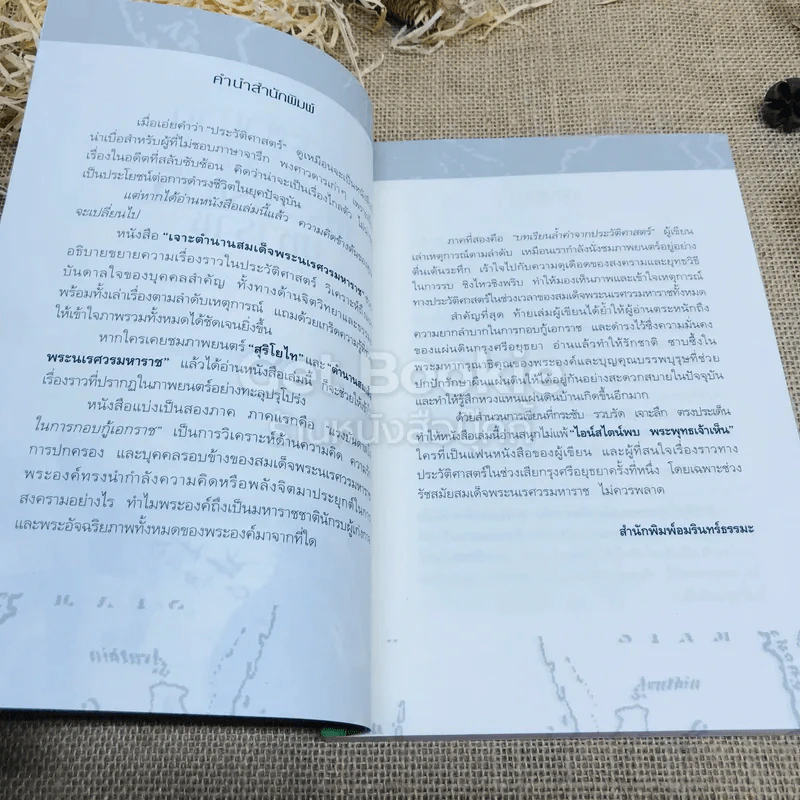 คำนำสำนักพิมพ์
เมื่อเอ่ยคำว่า "ประวัติศาสตร์" ดูเหมือนจะเป็น
น่าเบื่อสำหรับผู้ที่ไม่ชอบภาษาจารึก พงศาวดารเก่าๆ
เรื่องในอดีตที่สลับซับซ้อน คิดว่าน่าจะเป็นเรื่องไกลตัว
เป็นประโยชน์ต่อการดำรงชีวิตในยุคปัจจุบัน
แต่หากได้อ่านหนังสือเล่มนี้แล้ว ความคิดข้างต้น
จะเปลี่ยนไป
หนังสือ "เจาะตำนานสมเด็จพระนเรศวรมหาราช"
อธิบายขยายความเรื่องราวในประวัติศาสตร์ วิเคราะห์ถึง
บันดาลใจของบุคคลสำคัญ ทั้งทางด้านจิตวิทยาและ
พร้อมทั้งเล่าเรื่องตามลำดับเหตุการณ์ แถมด้วยเกร็ดความรู้
ให้เข้าใจภาพรวมทั้งหมดได้ชัดเจนยิ่งขึ้น
หากใครเคยชมภาพยนตร์ "สุริโยไท" และ "ตำนานสมเด็จ
พระนเรศวรมหาราช" แล้วได้อ่านหนังสือเล่มนี้ ก็จะช่วยให้
เรื่องราวที่ปรากฏในภาพยนตร์อย่างทะลุปรุโปร่ง
หนังสือแบ่งเป็นสองภาค ภาคแรกคือ
ในการกอบกู้เอกราช" เป็นการวิเคราะห์ด้านความคิด
การปกครอง และบุคคลรอบข้างของสมเด็จพระนเรศวรมหาราช
พระองค์ทรงนำกำลังความคิดหรือพลังจิตมาประยุกต์ในการ
สงครามอย่างไร ทำไมพระองค์ถึงเป็นมหาราชชาตินักรบผู้เก่งกาจ
และพระอัจฉริยภาพทั้งหมดของพระองค์มาจากที่ใด
ภาคที่สองคือ "บทเรียนล้ำค่าจากประวัติศาสตร์" ผู้เขียน
เล่าเหตุการณ์ตามลำดับ เหมือนเรากำลังนั่งชมภาพยนตร์อยู่อย่าง
ตื่นเต้นระทึก เร้าใจไปกับความดุเดือดของสงครามและยุทธวิธี
ในการรบ ชิงไหวชิงพริบ ทำให้มองเห็นภาพและเข้าใจเหตุการณ์
ทางประวัติศาสตร์ในช่วงเวลาของสมเด็จพระนเรศวรมหาราชทั้งหมด
สำคัญที่สุด ท้ายเล่มผู้เขียนได้ย้ำให้ผู้อ่านตระหนักถึง
ความยากลำบากในการกอบกู้เอกราช และดำรงไว้ซึ่งความมั่นคง
ของแผ่นดินกรุงศรีอยุธยา อ่านแล้วทำให้รักชาติ ซาบซึ้งใน
พระมหากรุณาธิคุณของพระองค์และบุญคุณบรรพบุรุษที่ช่วย
ปกปักรักษาผืนแผ่นดินให้เราอยู่กันอย่างสะดวกสบายในปัจจุบัน
และทำให้รู้สึกหวงแหนแผ่นดินบ้านเกิดขึ้นอีกมาก
ด้วยสำนวนการเขียนที่กระชับ รวบรัด เจาะลึก ตรงประเด็น
ทำให้หนังสือเล่มนี้อ่านสนุกไม่แพ้ "ไอน์สไตน์พบ พระพุทธเจ้าเห็น"
ใครที่เป็นแฟนหนังสือของผู้เขียน และผู้ที่สนใจเรื่องราวทาง
ประวัติศาสตร์ในช่วงเสียกรุงศรีอยุธยาครั้งที่หนึ่ง โดยเฉพาะช่วง
รัชสมัยสมเด็จพระนเรศวรมหาราช ไม่ควรพลาด
สำนักพิมพ์อมรินทร์ธรรมะ
Got Bookie
ร้านหนังสือมือสอง